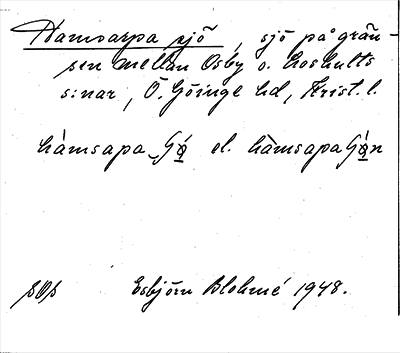 Hamsarpa sjö, sjö på grän-
sen mellan Osby o. Loshults
s:nar, Ö. Göinge hd, Krist. l.
hámsapa el. hàmsapa
SOS Esbjörn Blohmé 1948.